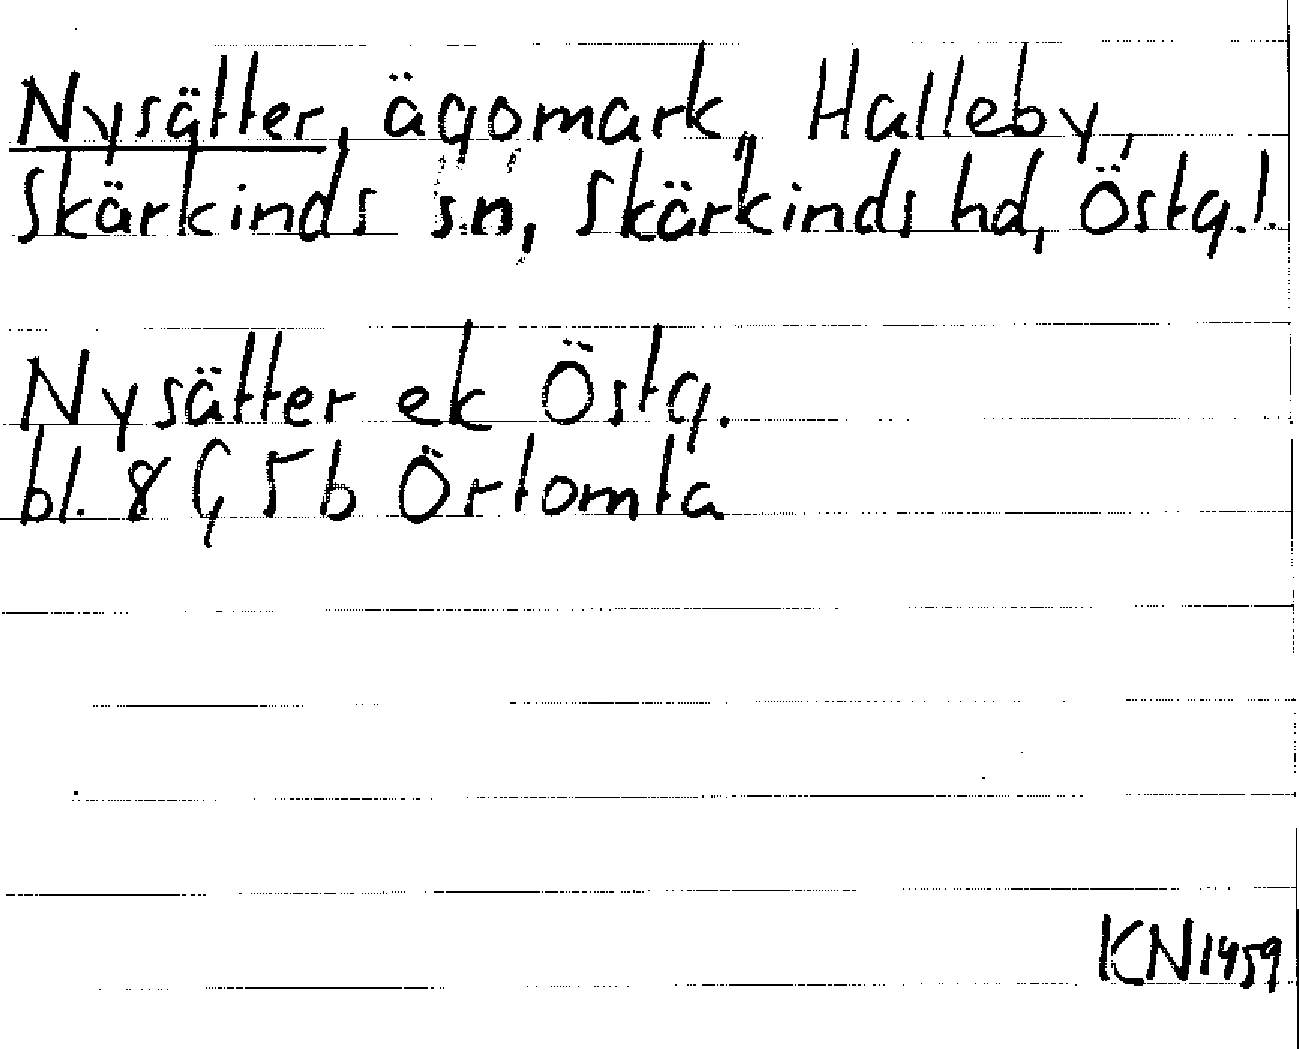 Nysätter, ägomark, Halleby,
Skärkinds sn, Skärkinds hd, Östg.l.
Nysätter ek Östg.
bl. 8 G 5 b Örtomta
KN1459